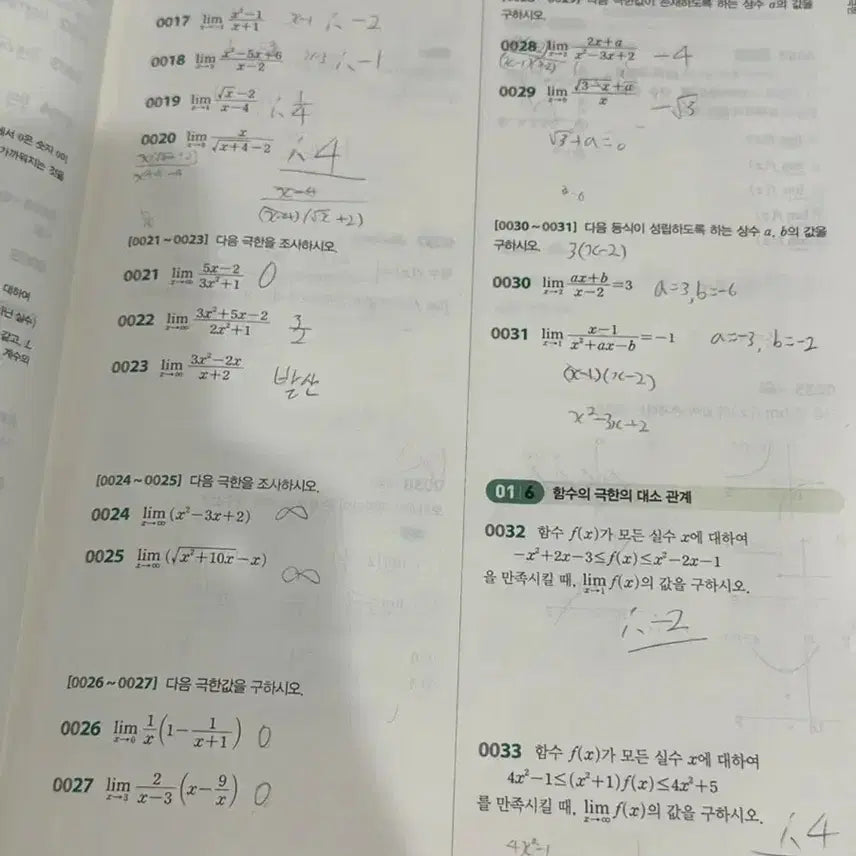 0017 lim x→-1 (x²-1)/(x+1) x-1 ∴ -2
0018 lim x→2 (x²-5x+6)/(x-2) x-3 ∴ -1
0019 lim x→4 (√x-2)/(x-4) ∴ 1/4
0020 lim x→0 x/(√(x+4)-2) ∴ 4
(x-4)/((x-4)(√x+2))
[0021~0023] 다음 극한을 조사하시오.
0021 lim x→∞ (5x-2)/(3x²+1) 0
0022 lim x→∞ (3x²+5x-2)/(2x²+1) 3/2
0023 lim x→∞ (3x²-2x)/(x+2) 발산
[0024~0025] 다음 극한을 조사하시오.
0024 lim x→∞ (x²-3x+2) ∞
0025 lim x→∞ (√(x²+10x)-x) ∞
[0026~0027] 다음 극한값을 구하시오.
0026 lim x→0 1/x(1-1/(x+1)) 0
0027 lim x→3 2/(x-3)(x-9/x) 0
구하시오.
0028 lim (2x+a)/(x²-3x+2) -4
0029 lim x→0 (√(3-x)+a)/x -√3
√3+a=0
[0030~0031] 다음 등식이 성립하도록 하는 상수 a, b의 값을
구하시오. 3(x-2)
0030 lim x→2 (ax+b)/(x-2)=3 a=3, b=-6
0031 lim x→1 (x-1)/(x²+ax-b)=-1 a=-3, b=-2
(x-1)(x-2)
x²-3x+2
01 6 함수의 극한의 대소 관계
0032 함수 f(x)가 모든 실수 x에 대하여
-x²+2x-3≤f(x)≤x²-2x-1
을 만족시킬 때, lim x→1 f(x)의 값을 구하시오.
∴ -2
0033 함수 f(x)가 모든 실수 x에 대하여
4x²-1≤(x²+1)f(x)≤4x²+5
를 만족시킬 때, lim x→∞ f(x)의 값을 구하시오.
∴ 4
4x²-1